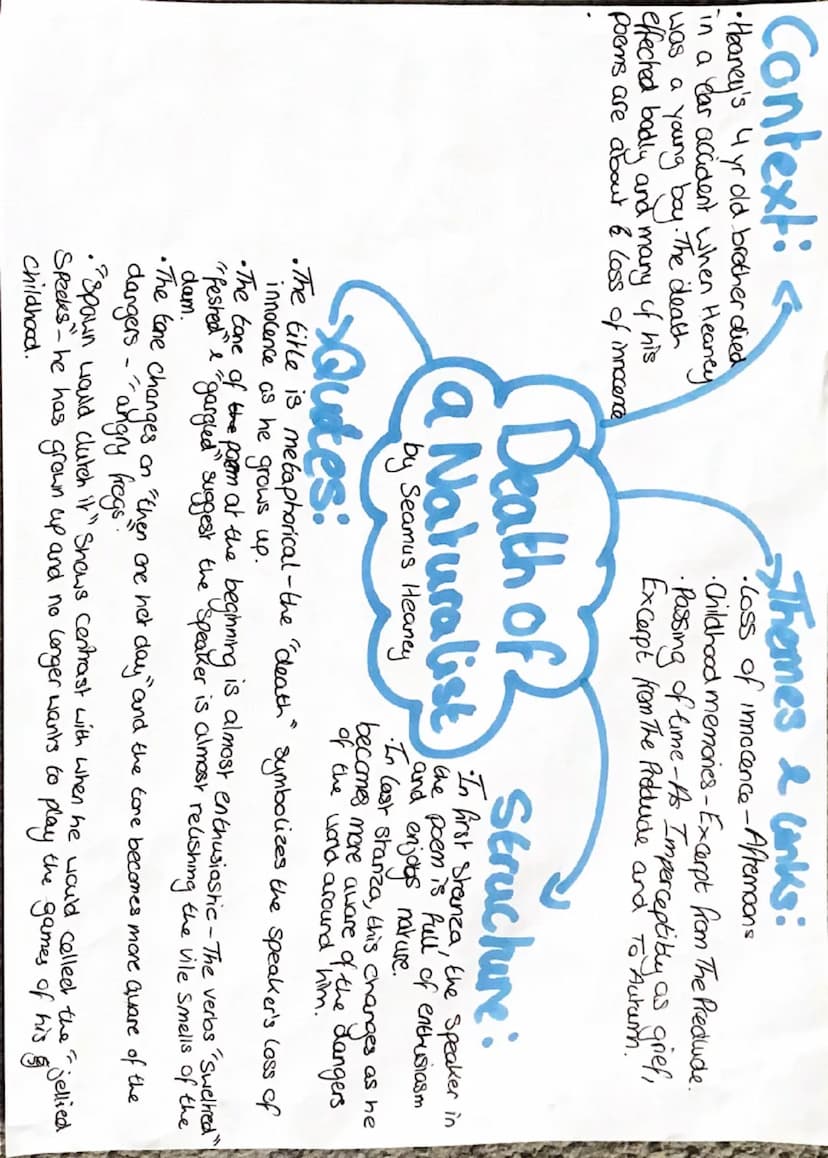 Context:
• Heaney's 4 yr old brother died
in a car accident when Heaney
was a young boy. The death
effected badly and many of his
poems are about loss of innocence
.
Themes & Links:
• Loss of innocence – Afternoons
• Childhood memories – Excerpt from The Predlude.
• Passing of time – As Imperceptibly as grief,
Excerpt from The Predlude and To Autumn.
Death of
a Naturalist
by Seamus Heaney
Structure:
• In first stranza, the speaker in
the poem is full of enthusiasm
and enjoys nature.
• In last stanza, this changes as he
becomes more aware of the dangers
of the world around him.
Qutes:
• The title is metaphorical – the "death" symbolizes the speaker's loss of
innocence as he grows up.
• The tone of the poem at the beginning is almost enthusiastic – The verbs "swelted"
"fested" & "gargled" suggest the speaker is almost relishing the vile smells of the
dam.
• The tone changes on "then one hot day" and the tone becomes more aware of the
dangers – "angry frogs".
• "Spawn would clutch it" shows contrast with when he would collect the "jellied
specks" – he has grown up and no longer wants to play the games of his
childhood.